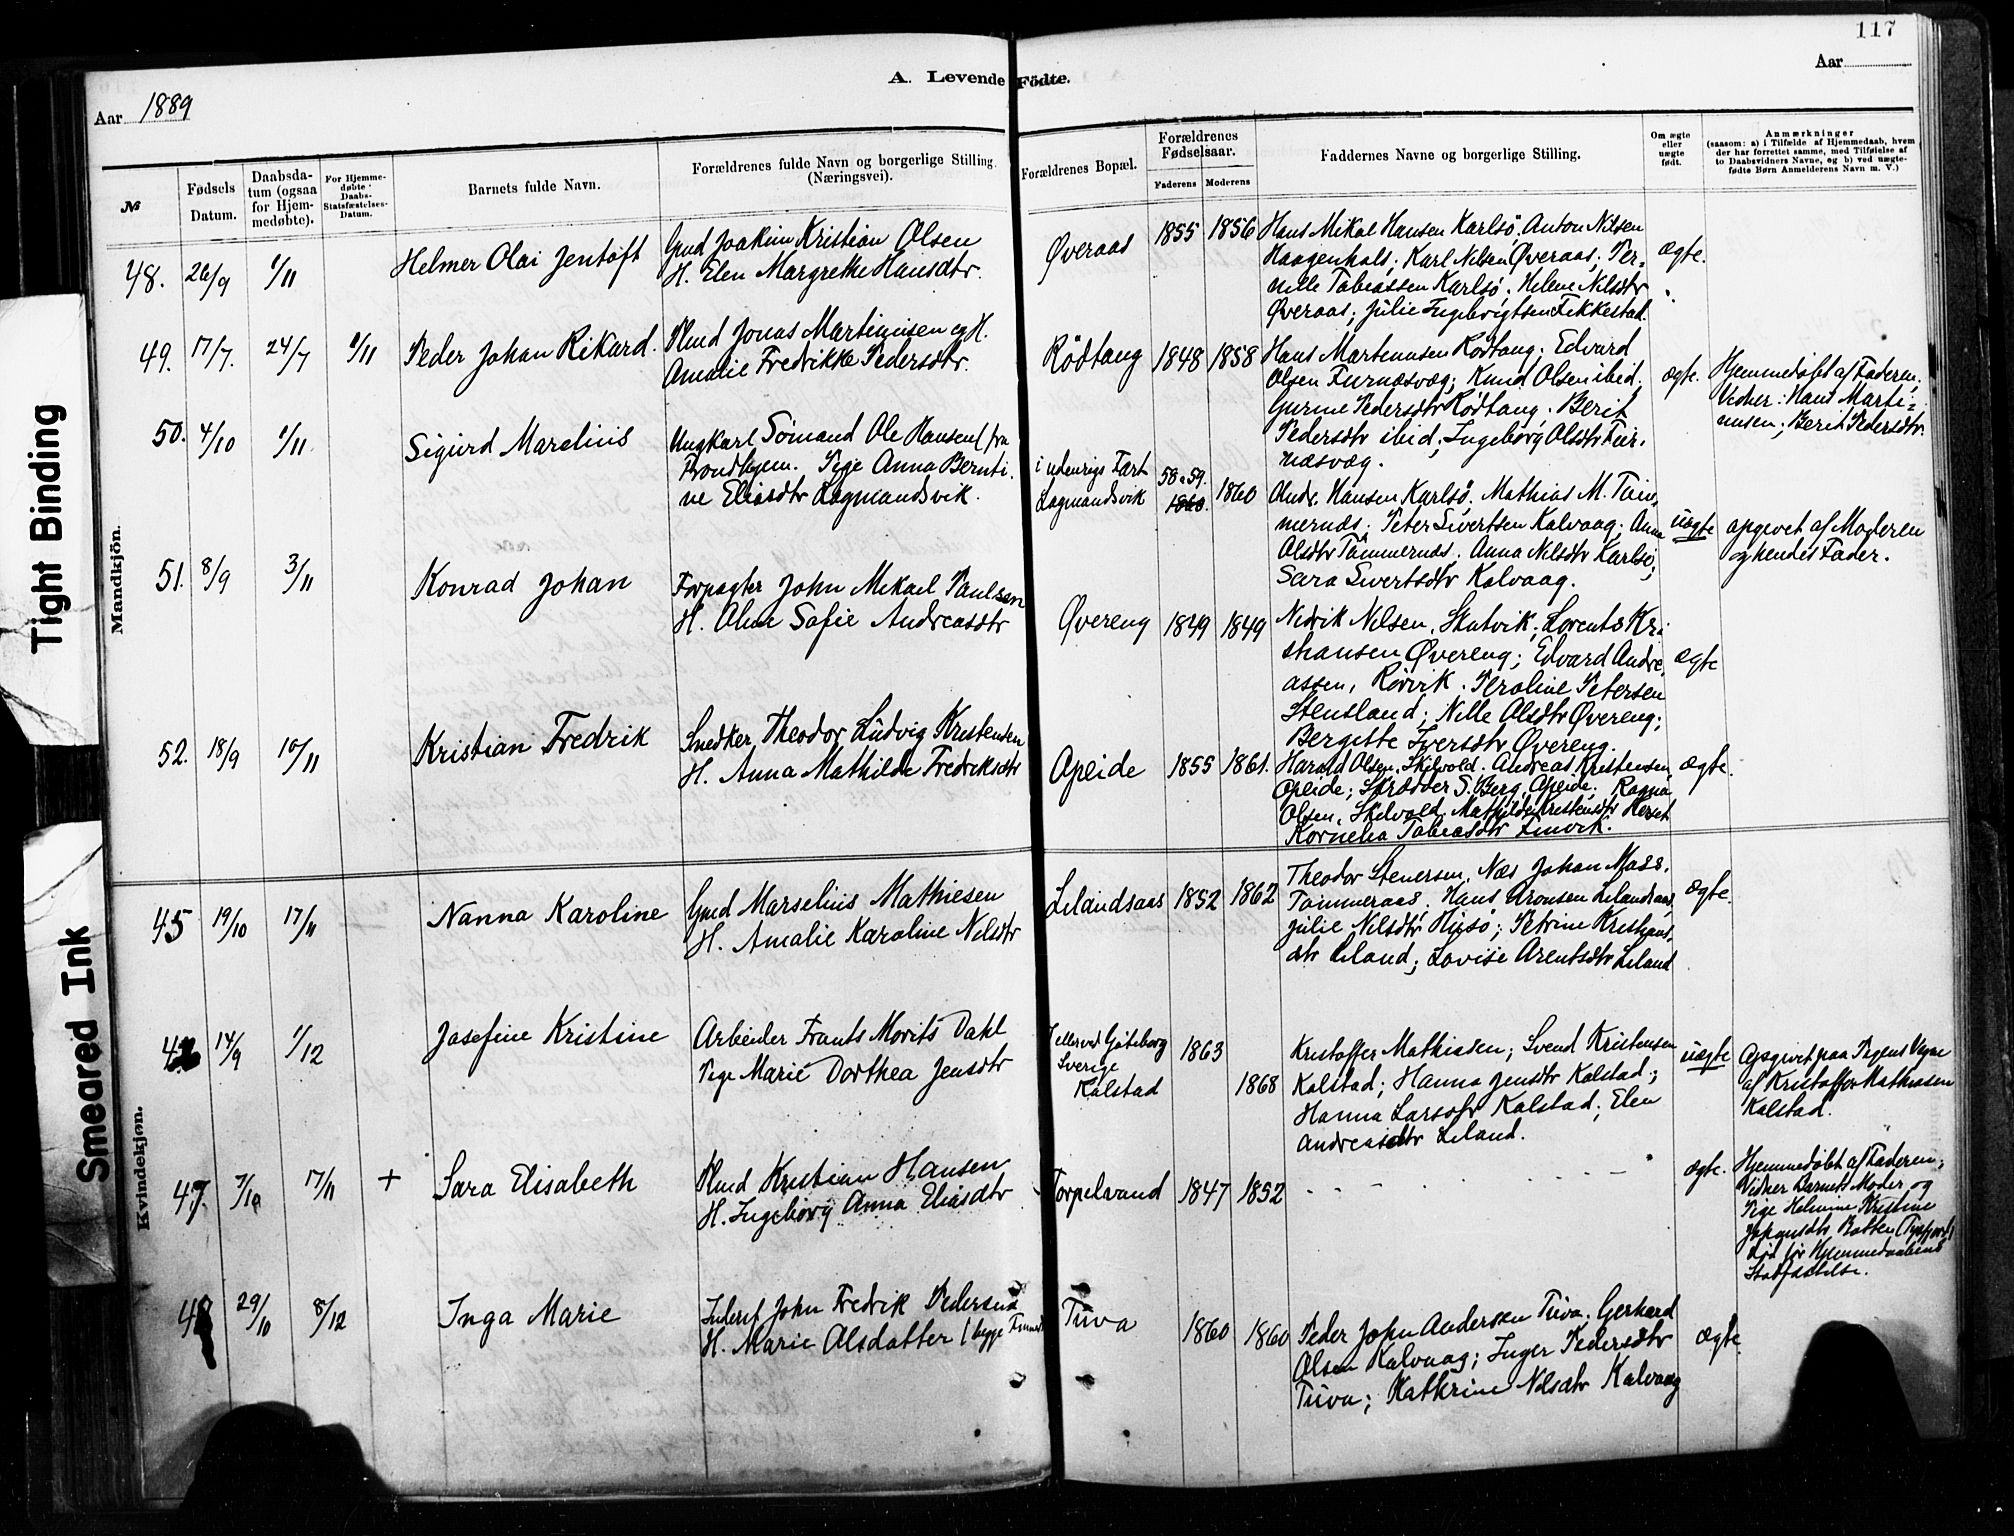 117
A. Levende Fødte.
Aar 1889
Aar
№
Fødsels Datum.
Daabsdatum (ogsaa for Hjemmedøbte).
For Hjemmedøbte Daabs-Statsfæstelses-Datum.
Barnets fulde Navn.
Forældrenes fulde Navn og borgerlige Stilling (Næringsvei).
Forældrenes Bopæl.
Forældrenes Fødselsaar.
Faderens
Moderens
Faddernes Navne og borgerlige Stilling.
Om ægte eller uægte født.
Anmærkninger
(saasom: a) i Tilfælde af Hjemmedaab, hvem der har forrettet samme, med Tilføielse af to Daabsvidners Navne, og b) ved uægtefødte Børn Anmelderens Navn m. V.)
Mandkjön.
48. 26/9 1/11 Helmer Olai Jentoft
Gmd Joakim Kristian Olsen
H. Elen Margrethe Hansdtr.
Øveraas 1855 1856
Hans Mikal Hansen Karlsö. Anton Nilsen
Haagenhals; Karl Nilsen Øveraas; Per-
nille Tobiassen Karlsö. Helene Nilsdtr
Øveraas; Julie Ingebrigtsen Fikkestad.
ægte.
49. 17/7. 24/7 1/11 Peder Johan Rikard.
Pmd Jonas Martinusen og H.
Amalie Fredrikke Pedersdtr.
Rödtang 1848 1858
Hans Martinusen Rödtang; Edvard
Olsen Furnæsvæg; Knud Olsen ibid;
Gurine Pedersdtr Rödtang. Berit
Pedersdtr ibid; Ingeborg Olsdtr Fur-
næsvæg.
ægte.
Hjemmedøbt af Faderen;
Vidner: Hans Marti-
nusen; Berit Pedersdtr.
50. 4/10 1/11 Sigurd Marelius
Ungkarl Sömand Ole Hansen (fra
Trondhjem. Pige Anna Bernti-
ne Eliasdtr Lagmandsvik.
i udenrigs Fart
Lagmandsvik
58 a 59.
1860. 1860
Andr. Hansen Karlsö. Mathias M. Töm-
mernæs. Peter Sivertsen Kalvaag; Anna
Olsdtr Tömmernæs. Anna Nilsdtr Karlsö;
Sara Sivertsdtr Kalvaag.
uægte
opgivet af Moderen
og hendes Fader.
51. 8/9 3/11 Konrad Johan
Forpagter John Mikael Paulsen
H. Oline Sofie Andreasdtr
Øvereng 1849 1849
Nedrik Nilsen, Skutvik; Lorents Kri-
stiansen Øvereng; Edvard Andre-
assen, Rörvik. Peroline Petersen
Stensland; Nille Olsdtr Øvereng;
Bergitte Iversdtr Øvereng.
ægte
52. 18/9 10/11 Kristian Fredrik
Snedker Theodor Ludvig Kristensen
H. Anna Mathilde Fredriksdtr
Apleide 1855 1861.
Harald Olsen, Skilvold. Andreas Kristensen,
Apleide; Skrædder S. Berg, Apleide; Ragna
Olsen, Skilvold. Mathilde Kristensdtr Herset
Kornelia Tobiasdtr Finvik.
ægte.
Kvindekjön.
45 19/10 17/11 Nanna Karoline
Gmd Marselius Mathiesen
H. Amalie Karoline Nilsdtr
Lilandsaas 1852 1862
Theodor Stenersen, Næs. Johan Mass.
Tömmeraas. Hans Aronsen Lilandsaas,
Julie Nilsdtr Husö; Petrine Kristians-
dtr Liland; Lovise Arentsdtr Liland
ægte.
46 14/9 1/12 Josefine Kristine
Arbeider Frants Morits Dahl
Pige Marie Dorthea Jensdtr
Göteborg
Sverige
Kalstad
1863
1868
Kristoffer Mathisen; Svend Kristensen
Kalstad; Hanna Jensdtr Kalstad;
Hanna Larsdtr Kalstad; Elen
Andreasdtr Liland.
uægte
Opgivet paa Pigens Vegne
af Kristoffer Mathiasen
Kalstad.
47. 7/10 17/11 + Sara Elisabeth
Pmd Kristian Hansen
H. Ingeborg Anna Eliasdtr
Torpelvand 1847 1852
ægte.
Hjemmedøbt af Faderen;
Vidner Barnets Moder og
Pige Helmine Kristine
Johansdtr Botten (Tysfjord)
død før Hjemmedaabens
Stadfæstelse.
48 29/10 8/12 Inga Marie
Inderst John Fredrik Pedersen
H. Marie Olsdatter (begge Finner)
Tuva 1860 1860
Peder John Andersen Tuva; Gerhard
Olsen Kalvaag; Inger Pedersdtr
Tuva; Kathrine Nilsdtr Kalvaag
ægte.
Tight Binding
Smeared Ink